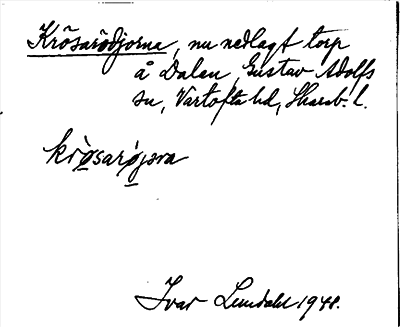 Krösarödjorna, nu nedlagt torp
å Dalen, Gustav Adolfs
sn, Vartofta hd, Skarab. l.
krö̀sarö́jɔra
Ivar Lundahl 1948.